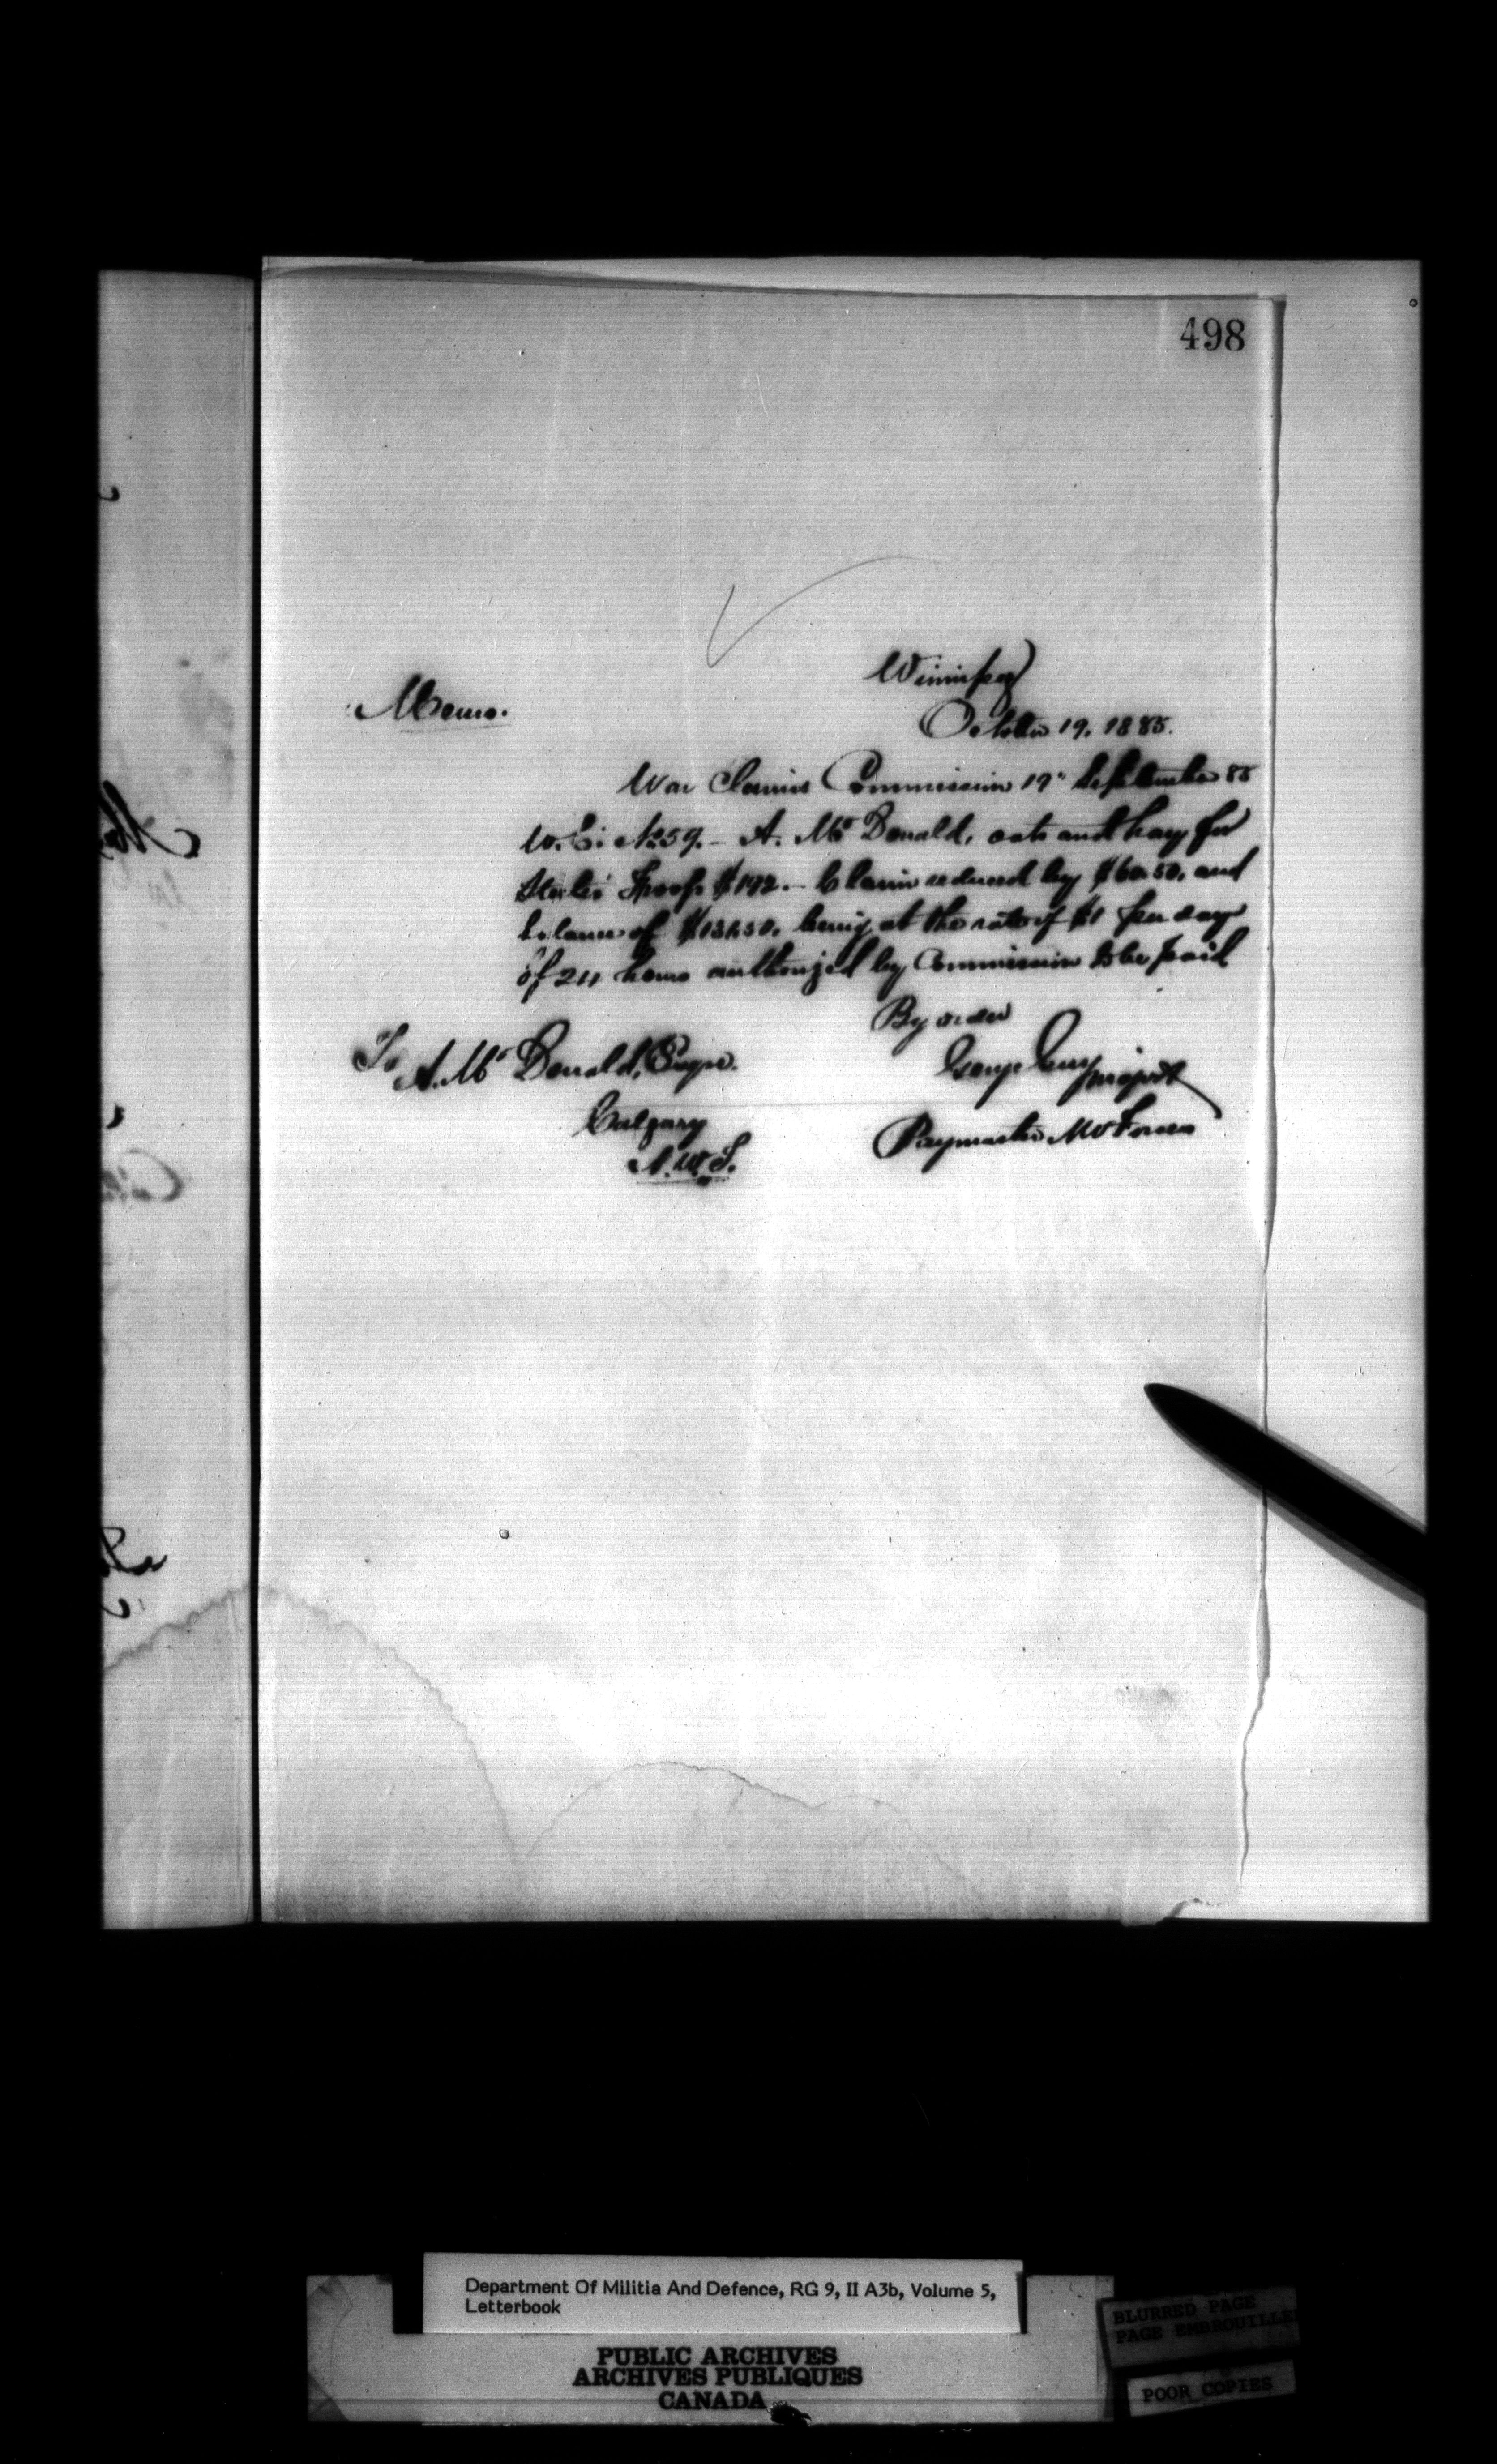 498
Winnipeg
Memo.
October 19. 1885.
War Claims Commission 19" September 85
W.C. No 59. - A. Mc Donald, oats and hay for
Steeles' Troops $192. - Claim reduced by $60.50. and
balance of $131.50. being at the rate of $1 per day
of 24 hours authorized by Commission to be paid
By order
To A. Mc Donald, Esqre.
George Guy Major
Calgary
Paymaster MW Forces
N.W.T.
Department Of Militia And Defence, RG 9, II A3b, Volume 5,
Letterbook
PUBLIC ARCHIVES
ARCHIVES PUBLIQUES
CANADA
BLURRED PAGE
PAGE EMBROUILLE
POOR COPIES